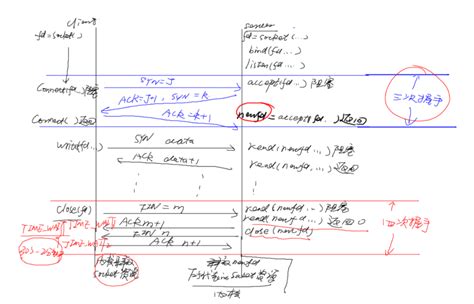 client
server
fd=socket()
fd=socket(...)
bind(fd...)
listen(fd...)
connect(fd...)阻塞
SYN=J
accept(fd...)阻塞
ACK=J+1, SYN=k
三次握手
connect(...)返回
ACK=k+1
newfd=accept(fd...)返回
write(fd...)
SYN data
read(newfd...)阻塞
ACK data+1
read(newfd,...)返回
close(fd)
FIN=m
read(newfd...)阻塞
TIME_WAIT1
ACK m+1
read(newfd...)返回0
四次握手
FIN=n
close(newfd)
TIME_WAIT2
ACK n+1
30s-2min
内核
socket资源
newfd
socket资源